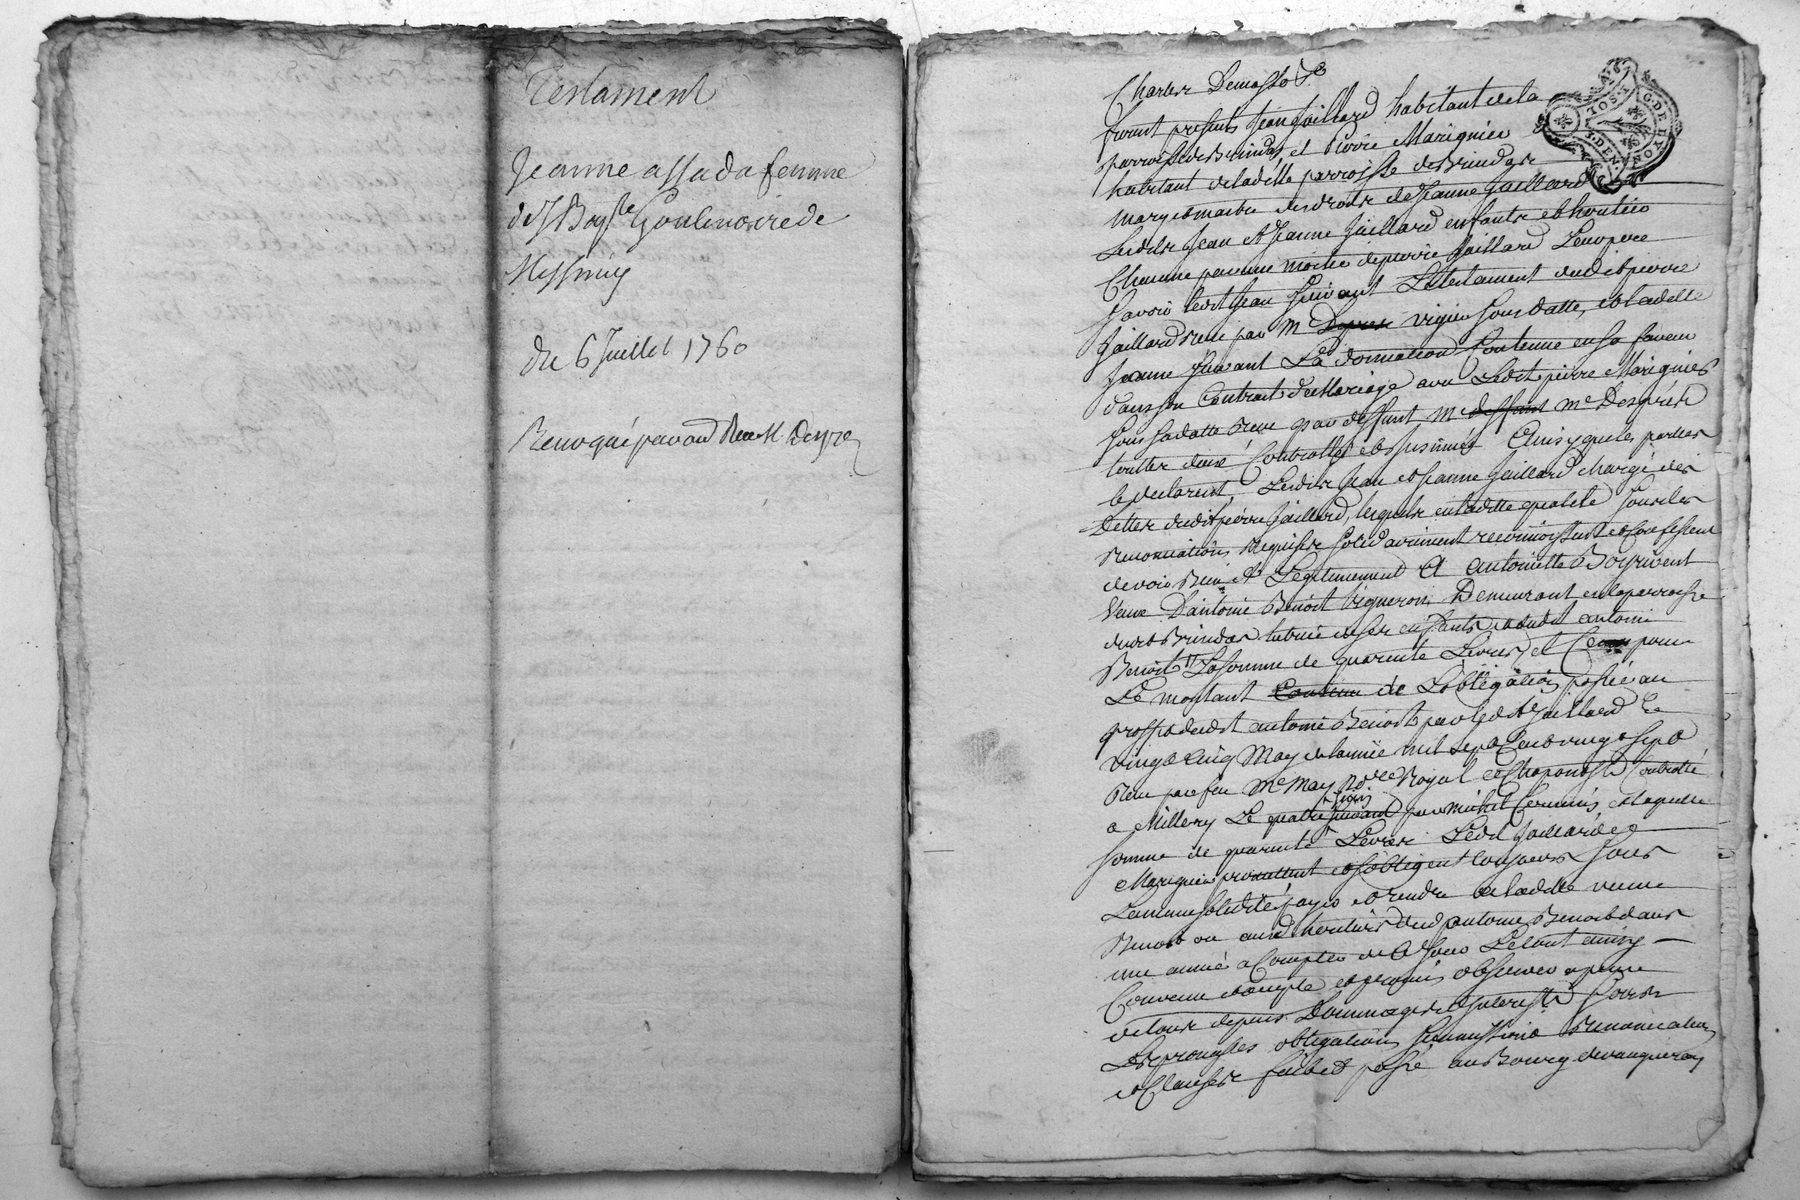 Testament
Jeanne assada femme
de J Bap.te Goulenoire de
Messimy
du 6 Juillet 1760
Revoqué par aud Rece M Deyre
furent presents Jean Gaillard habitant de la
parroisse de Brindas et Pierre Marignier
habitant de laditte parroisse de Brindas
mary et maitre des droits de Jeanne Gaillard
Lesdits Jean et Jeanne Gaillard enfants et heritiers
Chacune par une moitié de pierre Gaillard Leur pere
Savoir ledit Jean suivant Le testament dudit pierre
Gaillard receu par Me vigier sous datte, et ladette
Jeanne suivant La donnation Contenue en sa faveur
dans son Contract de Mariage avec Ledit pierre Marignier
sous sa datte receu par deffunt Me Desprès
toutte deux Controllés et insinués Ainsy que les parties
le declarent, Lesdits Jean et Jeanne Gaillard chargé des
Dettes dudit pierre Gaillard, lesquels en laditte qualité sous les
renonciations requises solidairement reconnoissent et confessent
devoir bien et Legitimement A Antoinette Boyrivent
Veuve D'antoine Benoit Vigneron Demeurant en la parroisse
dudit Brindas tutrice de ses enfants et dudit antoine
Benoit La somme de quarente Livres et pour
Le montant de L'obligation passée au
proffit dudit antoine Benoist par led Gaillard Le
vingt Cinq May de l'année mil sept Cent vingt sept
Receu par feu Me May Royal Chaponost Controllé
a Millery Le par Michel et laquelle
somme de quarente Livres Ledit Gaillard et
Marignier promettent et s'obligent toujours sous
La meme solidité payer et rendre a ladette veuve
Benoit ou aux heritiers dud antoine Benoit dans
une année a Compter de Ce Jour Le tout ainsy
Convenu accepté et promis observer a peine
de tous depens Dommages et Interests
obligations soumissions renonciations
et Clauses fait et passé au Bourg de vaugneray